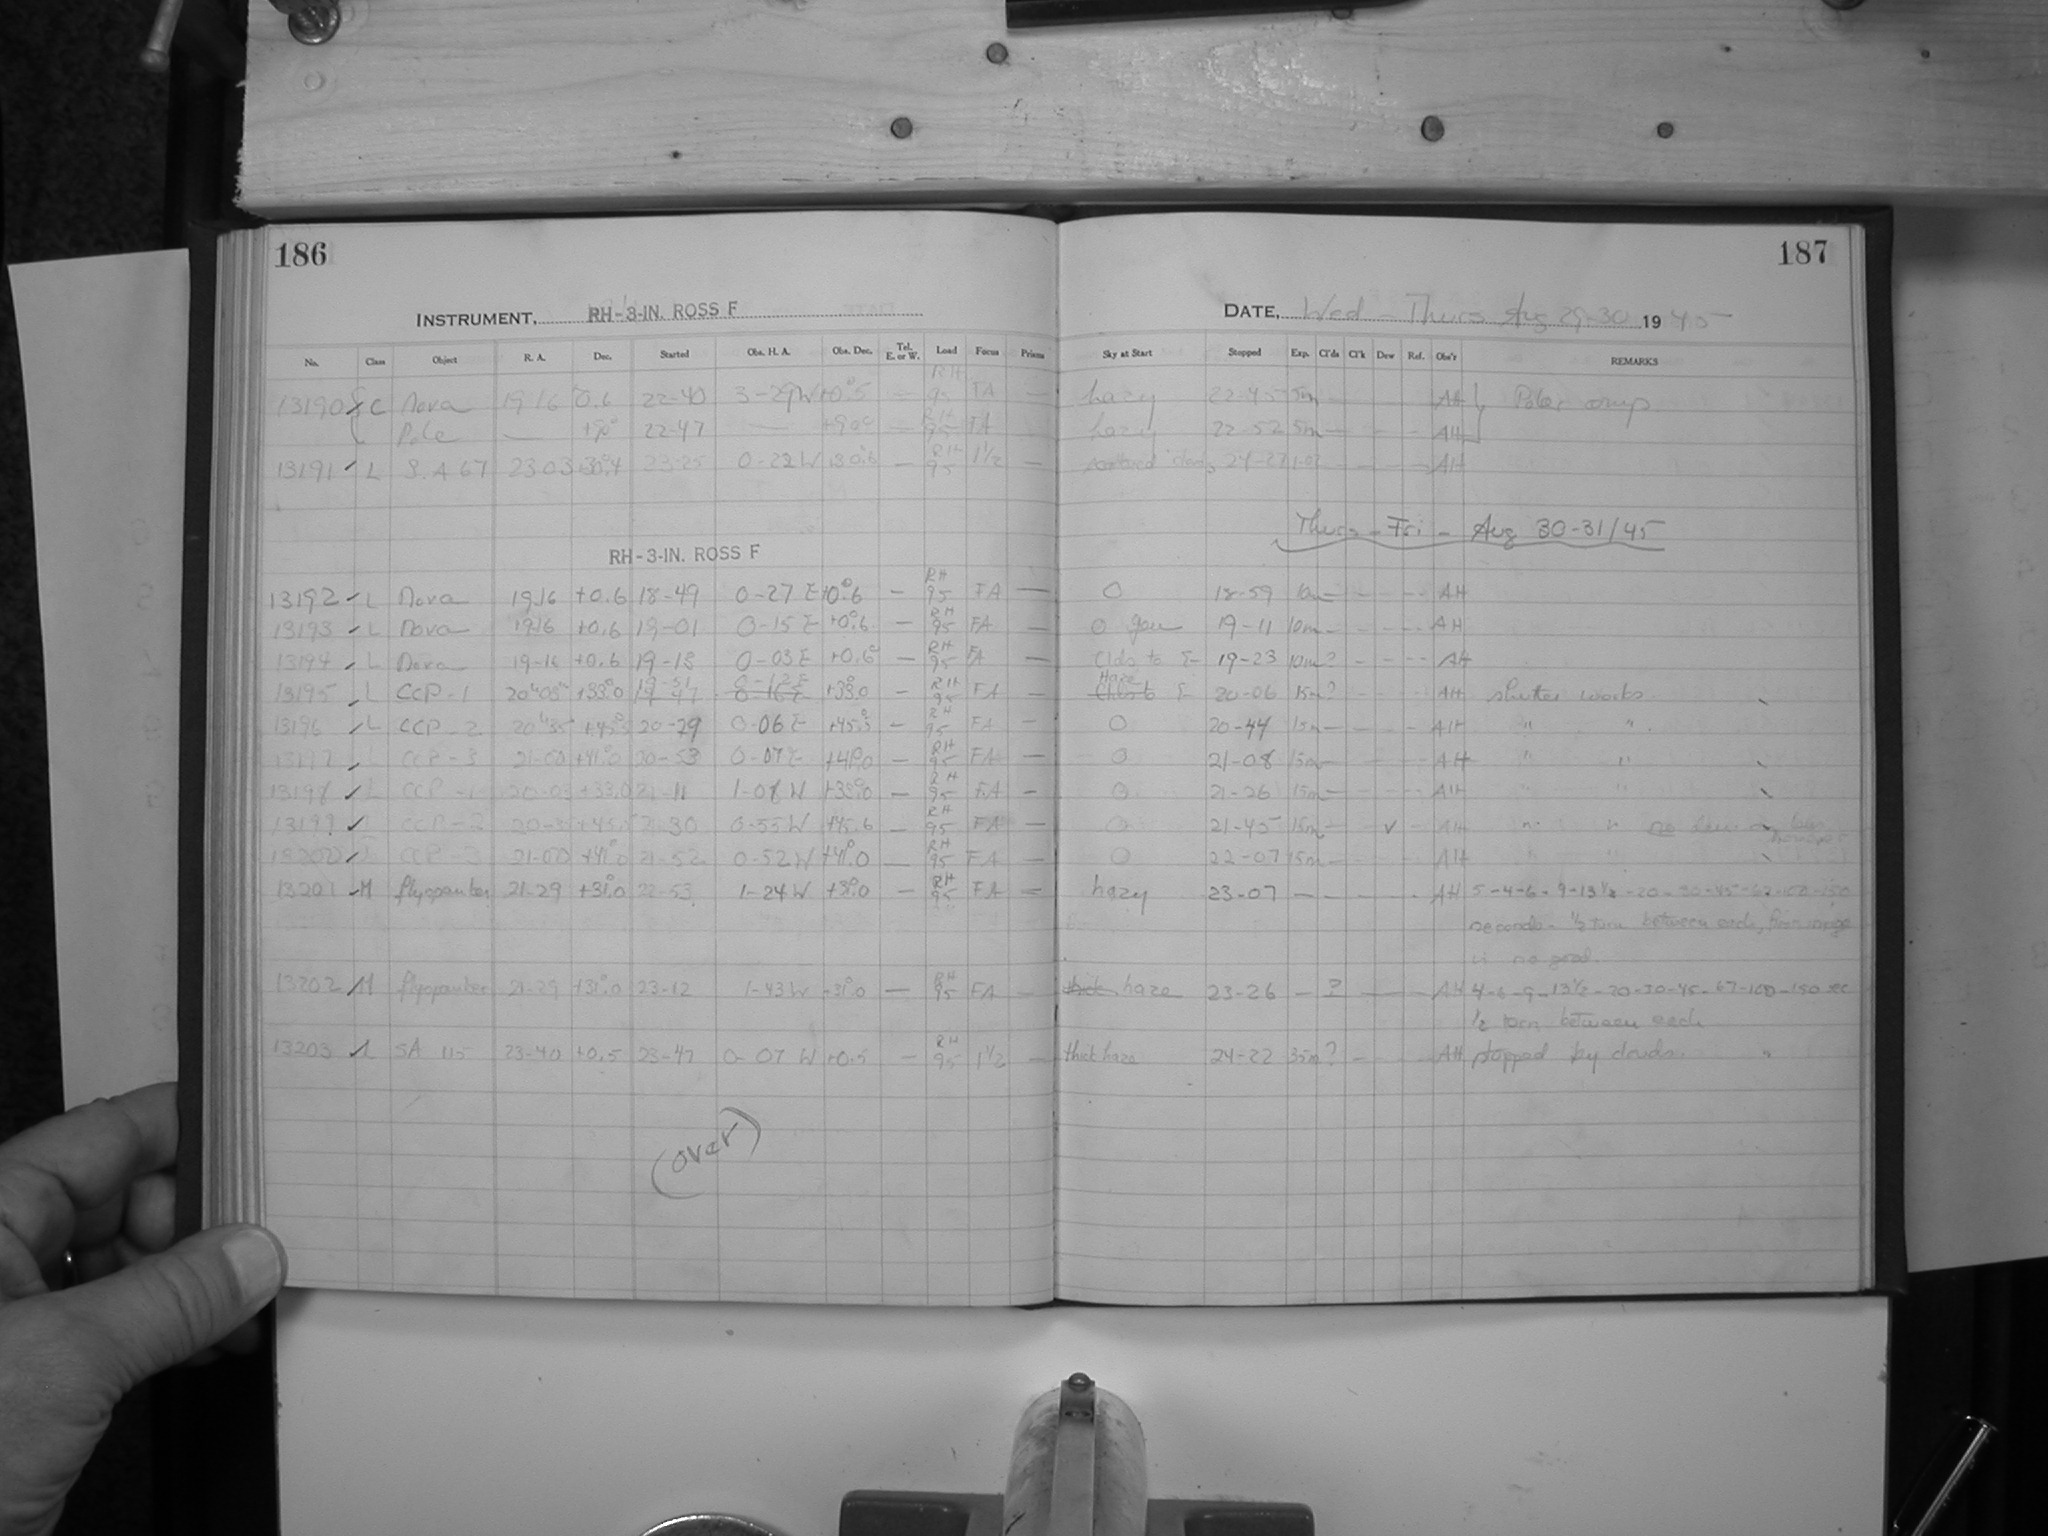 186
187
INSTRUMENT, RH-3-IN. ROSS F
DATE, Wed - Thurs Aug 29-30 1945
No. Class Object R. A. Dec. Started Obs. H. A. Obs. Dec. Tel. E. or W. Load Focus Prisms Sky at Start Stopped Exp. Cl'ds Cl'k Dew Ref. Obs'r REMARKS
13190 C Nova 19 16 0.6 22-40 3-29W +0°.5 — RH 95 FA — hazy 22-45 5m AH
Pole — +90° 22-47 — +90° — RH 95 FA hazy 22-52 5m — AH
13191 L S.A 67 23 03 +30°.4 23-25 0-22 W +30°.6 — RH 95 1½ — scattered AH
Thurs - Fri - Aug 30-31/45
RH-3-IN. ROSS F
13192 L Nova 19 16 +0.6 18-49 0-27 E +0°.6 — RH 95 FA — O 18-59 10m — AH
13193 L Nova 19 16 +0.6 19-01 0-15 E +0°.6 — RH 95 FA — O 19-11 10m — AH
13194 L Nova 19-16 +0.6 19-13 0-03 E +0.6° — RH 95 FA — Clds to E — 19-23 10m ? AH
13195 L CCP-1 20h05m +33°.0 19-51 0-12E +33.0 — RH 95 FA — Haze E 20-06 15m ? AH shutter works
13196 L CCP-2 20h35 +45°.5 20-29 0-06 E +45.5 — RH 95 FA — O 20-44 15m — AH " "
13197 L CCP-3 21-00 +41°.0 20-53 0-07 E +41°.0 — RH 95 FA — O 21-08 15m — AH " "
13198 L CCP-1 20-05 +33.0 21-11 1-08 W +33°.0 — RH 95 FA — O 21-26 15m — AH " "
13199 L CCP-2 21-30 0-55 W +45.6 — RH 95 FA — O 21-45 15m — v AH " " no dew
13200 L CCP-3 21-00 +41°.0 21-52 0-52 W +41°.0 — RH 95 FA — O 22-07 15m — AH " "
13201 M flyspanker 21-29 +31°.0 22-53 1-24 W +31°.0 — RH 95 FA — hazy 23-07 — AH 5-4-6-9-13½-20-30-45-67-100-150
seconds - ½ turn between each, first image
is no good.
13202 M flyspanker 21-29 +31°.0 23-12 1-43 W +31°.0 — RH 95 FA — thick haze 23-26 — ? — AH 4-6-9-13½-20-30-45-67-100-150 sec
½ turn between each
13203 L SA 115 23-40 +0.5 23-47 0-07 W +0.5 — RH 95 1½ — thick haze 24-22 35m ? — AH stopped by clouds.
(over)